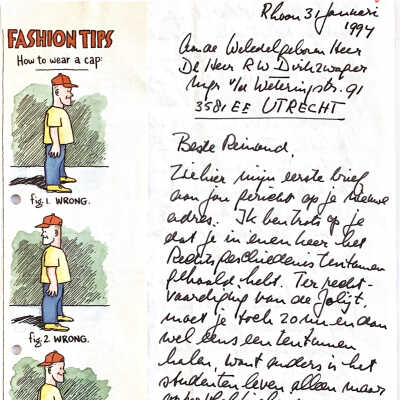 FASHION TIPS
How to wear a cap:
fig. 1. WRONG.
fig. 2 WRONG.
Rhoon 31 Januari
1994
Aan de Weledelgeboren Heer
De Heer R W Dirkzwager
Mgr v/d Weteringstr. 91
3581 EE UTRECHT
Beste Reinoud,
Zie hier mijn eerste brief
aan jou gericht op je nieuwe
adres. Ik ben trots op je
dat je in enen keer het
Rechtsgeschiedenis tentamen
gehaald hebt. Ter recht-
vaardiging van de Jolijt,
moet je toch zo nu en dan
wel eens een tentamen
halen, want anders is het
studenten leven alleen maar